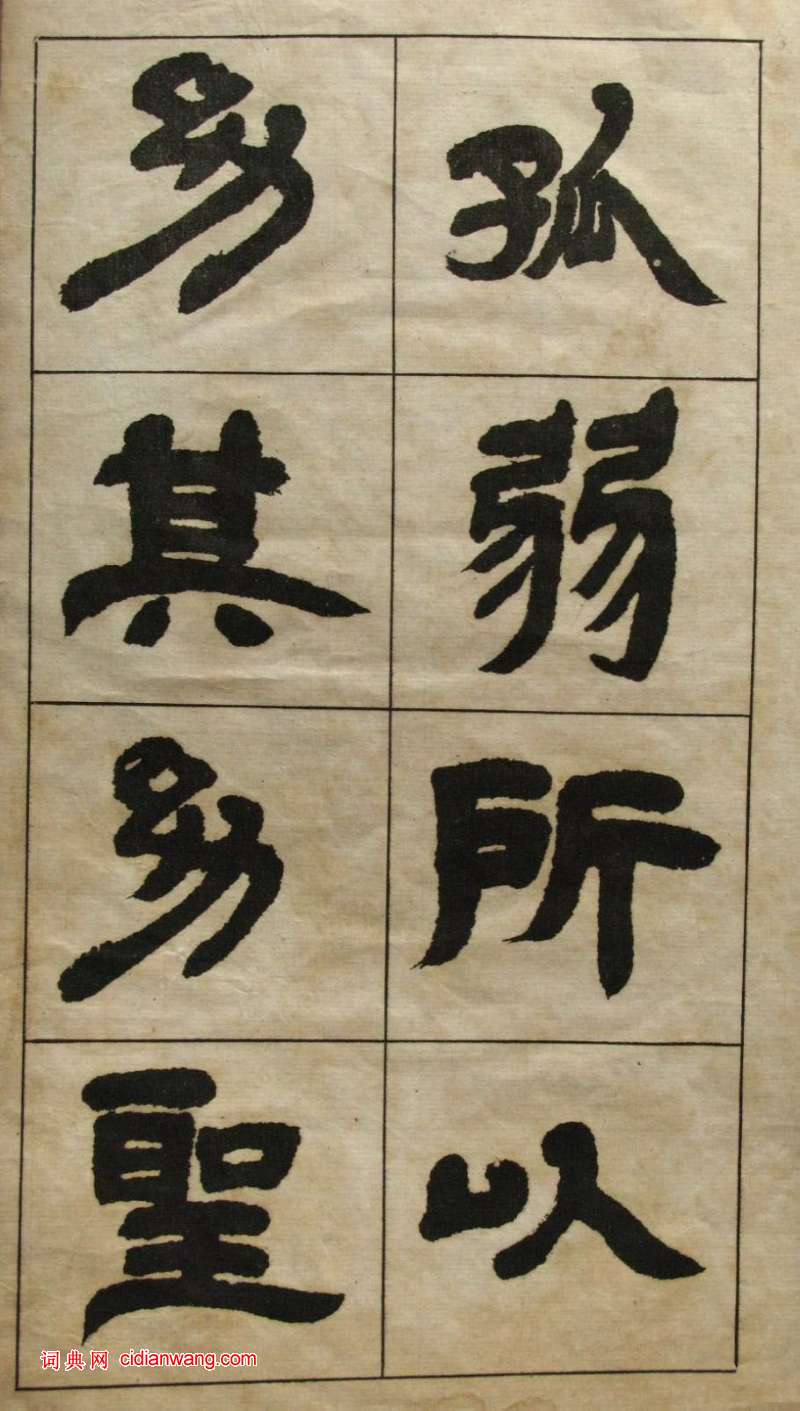 孤弱所以
幼其幼聖
词典网 cidianwang.com